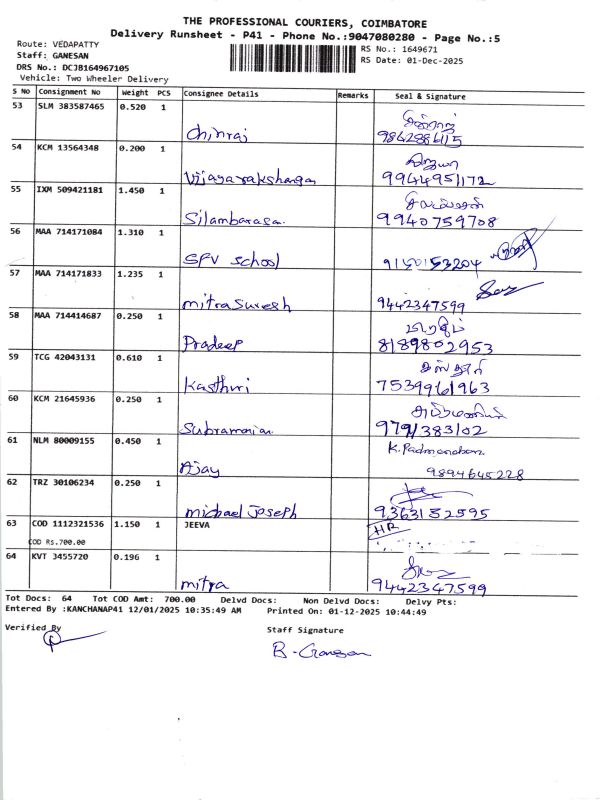 THE PROFESSIONAL COURIERS, COIMBATORE
Delivery Runsheet - P41 - Phone No.:9047080280 - Page No.:5
Route: VEDAPATTY
Staff: GANESAN
DRS No.: DCJB164967105
Vehicle: Two Wheeler Delivery
RS No.: 1649671
RS Date: 01-Dec-2025
S No Consignment No Weight PCS Consignee Details Remarks Seal & Signature
53 SLM 383587465 0.520 1
Chinraj
9842886115
54 KCM 13564348 0.200 1
விஜயா
Vijayarakshangan 9944951172
55 IXM 509421181 1.450 1
Silambarasa 9940759708
56 MAA 714171084 1.310 1
SFV School 9150153204
57 MAA 714171833 1.235 1
mitrasuresh 9442347599
58 MAA 714414687 0.250 1
பிரதீப்
Pradeep 8189802953
59 TCG 42043131 0.610 1
கஸ்தூரி
Kasthuri 7539961963
60 KCM 21645936 0.250 1
Subramanian 9791383102
61 NLM 80009155 0.450 1
K. Padmanaban
Ajay 9894645228
62 TRZ 30106234 0.250 1
michael Joseph 9363152595
63 COD 1112321536 1.150 1 JEEVA
HR
COD RS.700.00
64 KVT 3455720 0.196 1
mitra 9442347599
Tot Docs: 64 Tot COD Amt: 700.00 Delvd Docs: Non Delvd Docs: Delvy Pts:
Entered By :KANCHANAP41 12/01/2025 10:35:49 AM Printed On: 01-12-2025 10:44:49
Verified By
Staff Signature
B. Ganesan